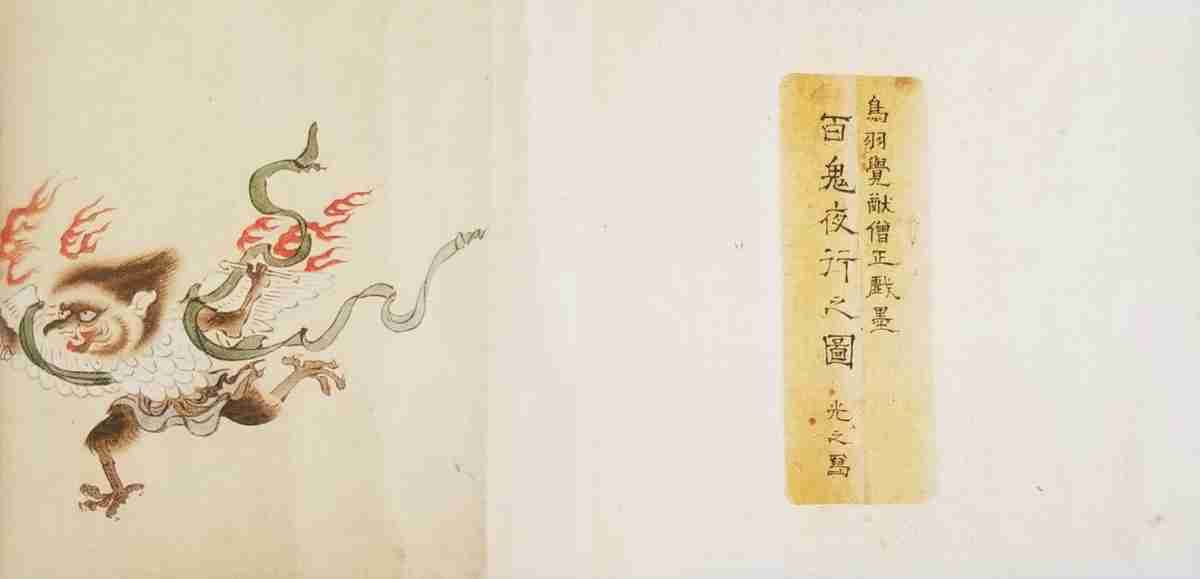 鳥羽覺猷僧正戲墨
百鬼夜行之圖 光之寫